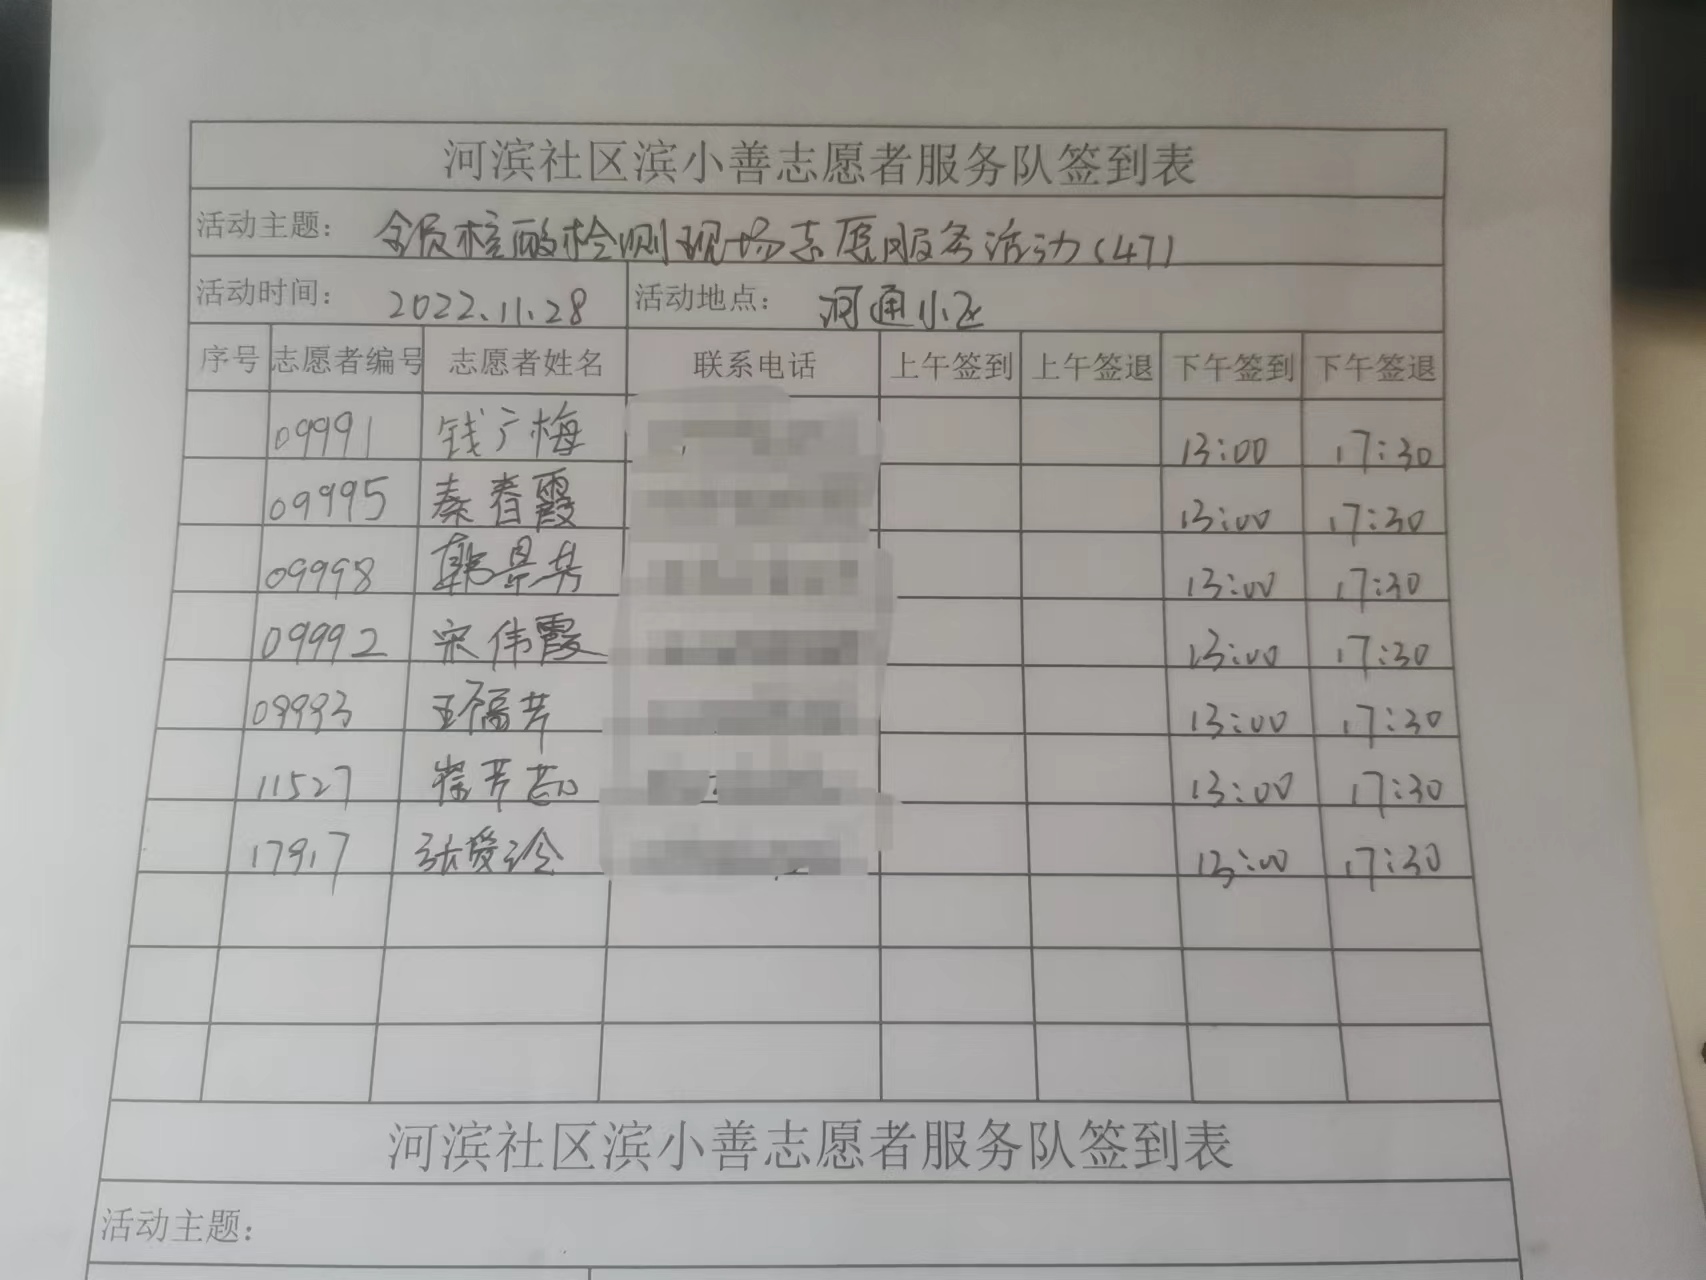 河滨社区滨小善志愿者服务队签到表
活动主题： 全员核酸检测现场志愿服务活动(47)
活动时间： 2022.11.28 活动地点： 河通小区
序号 志愿者编号 志愿者姓名 联系电话 上午签到 上午签退 下午签到 下午签退
09991 钱广梅 13:00 17:30
09995 秦春霞 13:00 17:30
09998 13:00 17:30
09992 宋伟霞 13:00 17:30
09993 王福芳 13:00 17:30
11527 13:00 17:30
17917 张爱玲 13:00 17:30
河滨社区滨小善志愿者服务队签到表
活动主题：